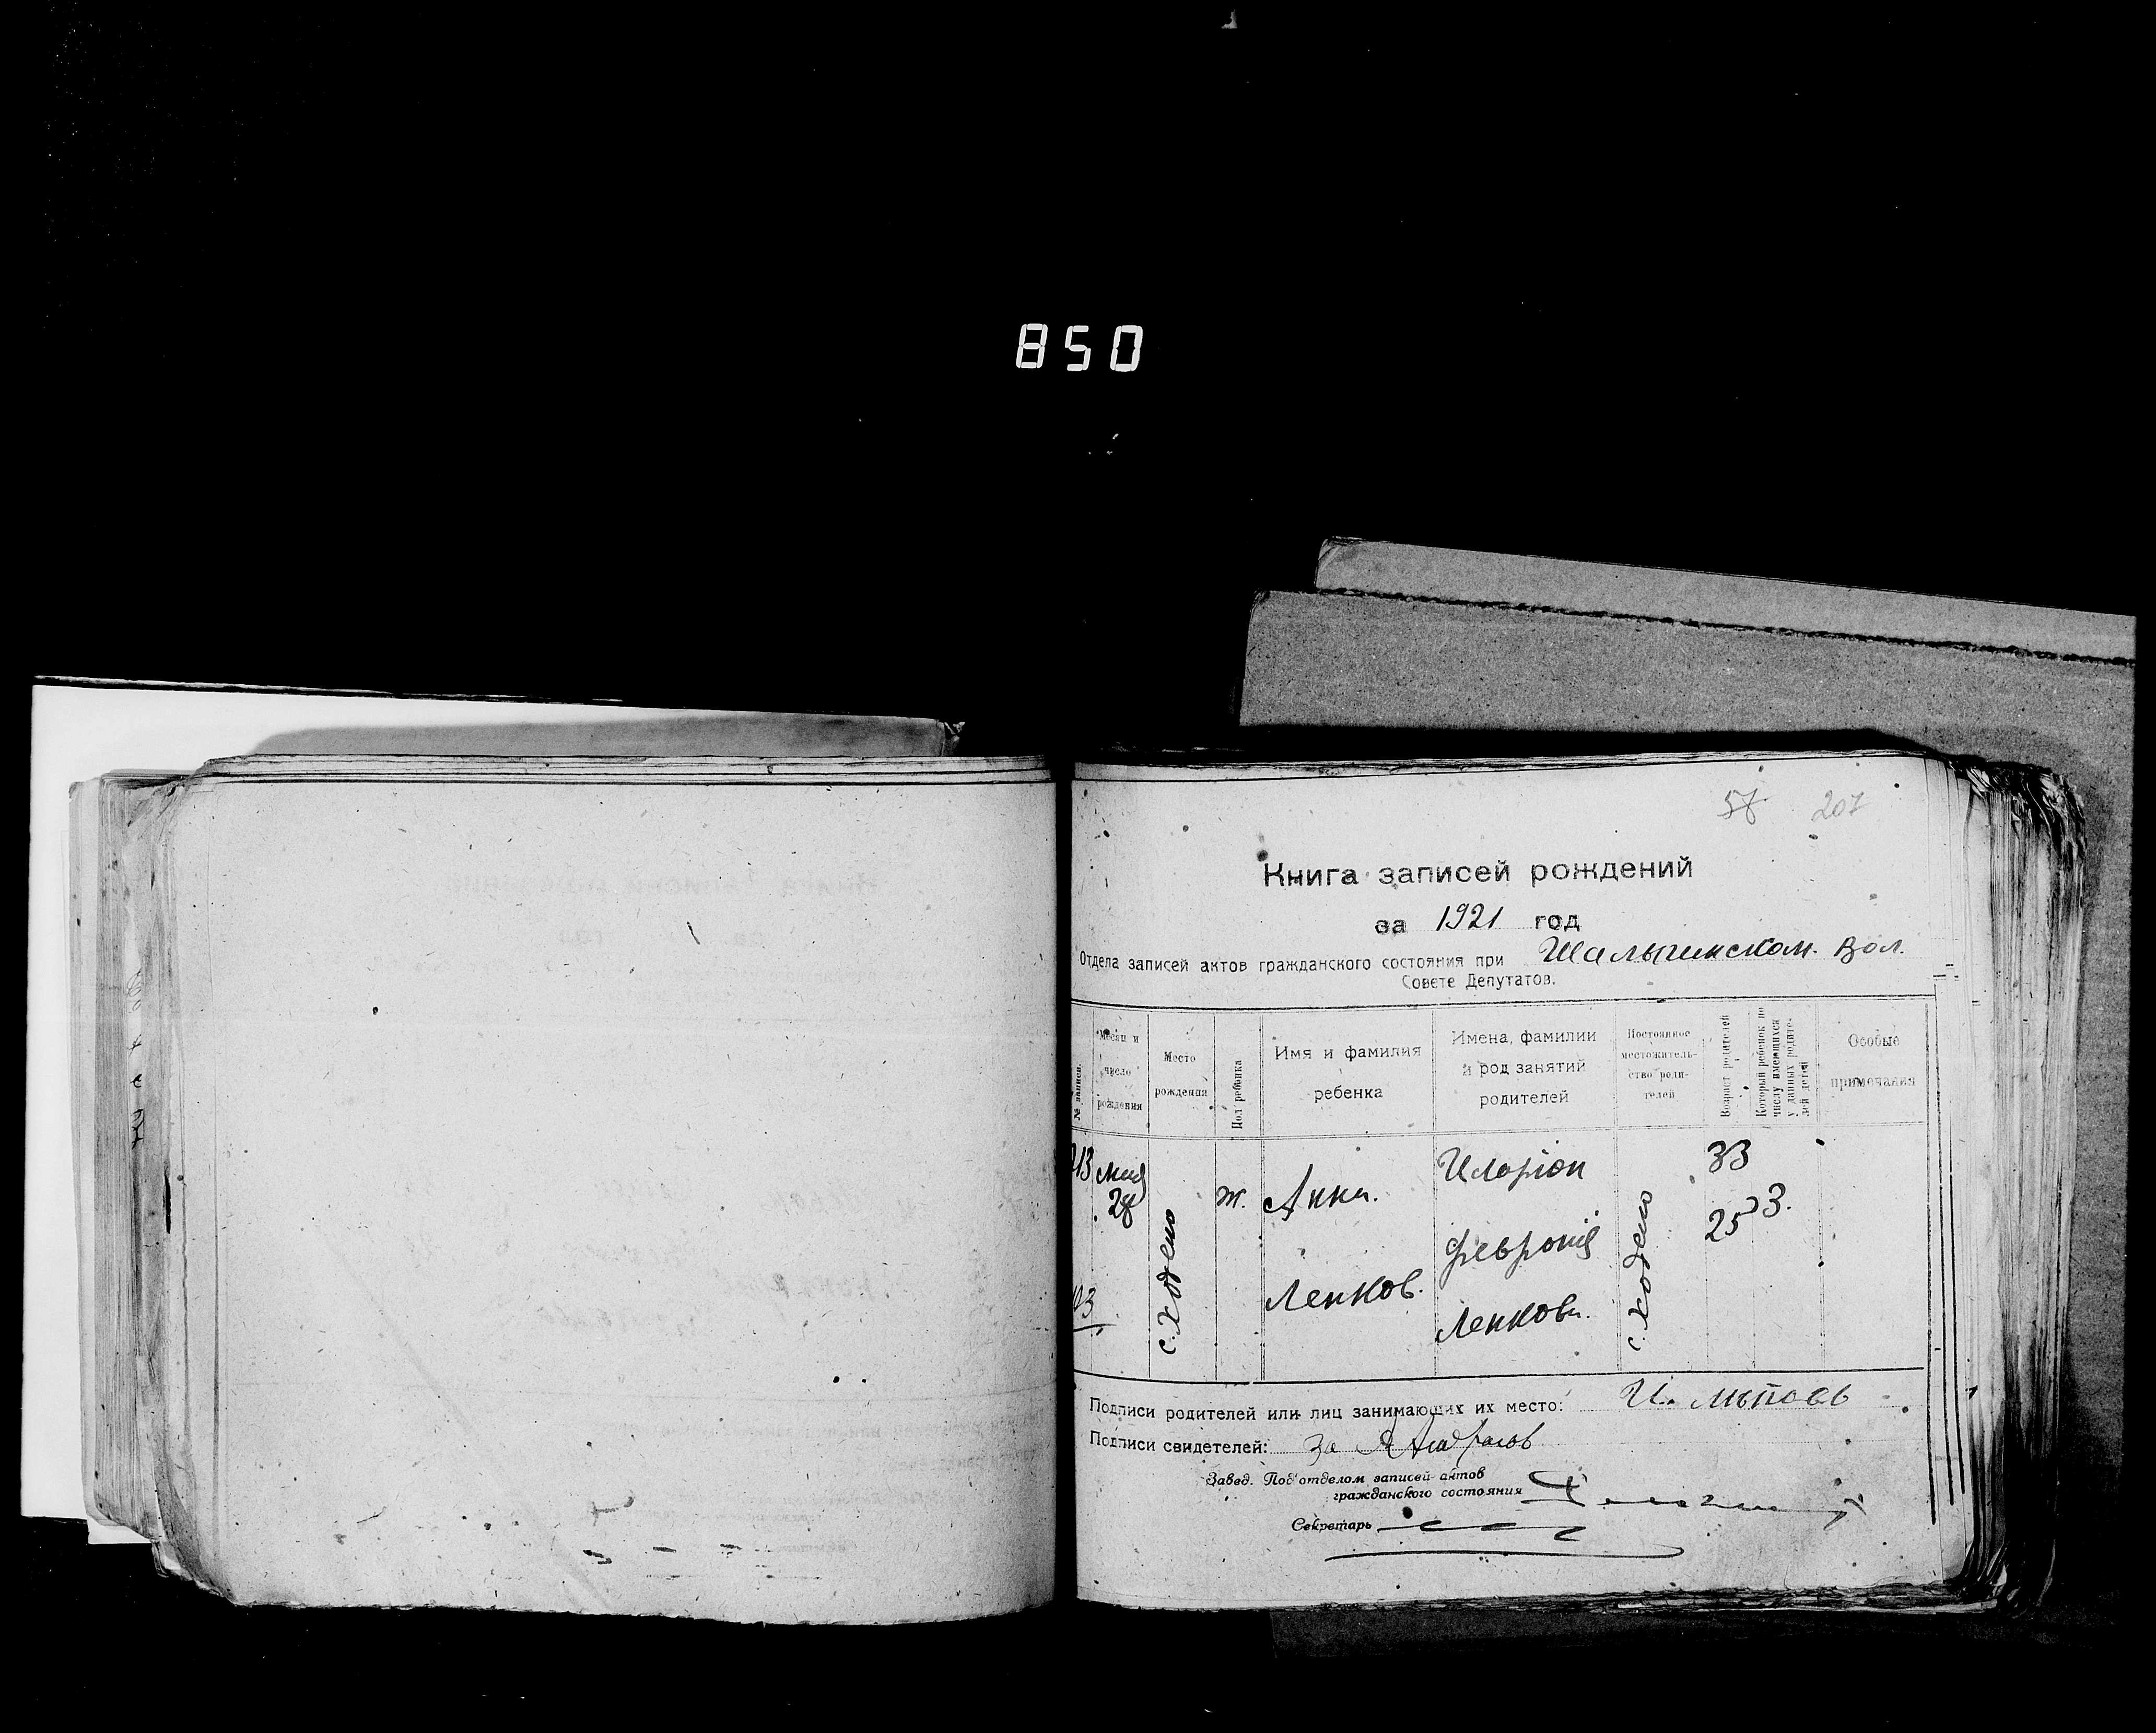 850
58 207
Книга записей рождений
за 1921 год
Отдела записей актов гражданского состояния при Шалыгинском. Вол.
Совете Депутатов.
№ записи.
Месяц и
число
рождения
Место
рождения
Пол ребенка
Имя и фамилия
ребенка
Имена, фамилии
и род занятий
родителей
Постоянное
местожитель-
ство роди-
телей
Возраст родителей
Который ребенок по
числу имеющихся
у данных родите-
лей детей
Особые
примечания
мая
28
с. Ходено
ж.
Анна.
Лепков.
Иларіон
Февронія
Лепкова.
с. Ходено
33
25
3.
Подписи родителей или лиц занимающих их место: И.
Подписи свидетелей: За
Завед. Под'отделом записей актов
гражданского состояния
Секретарь